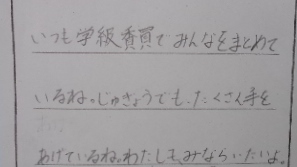 いつも学級委員でみんなをまとめて
いるね。じゅぎょうでも、たくさん手を
あげているね。わたしも、みならいたいよ。